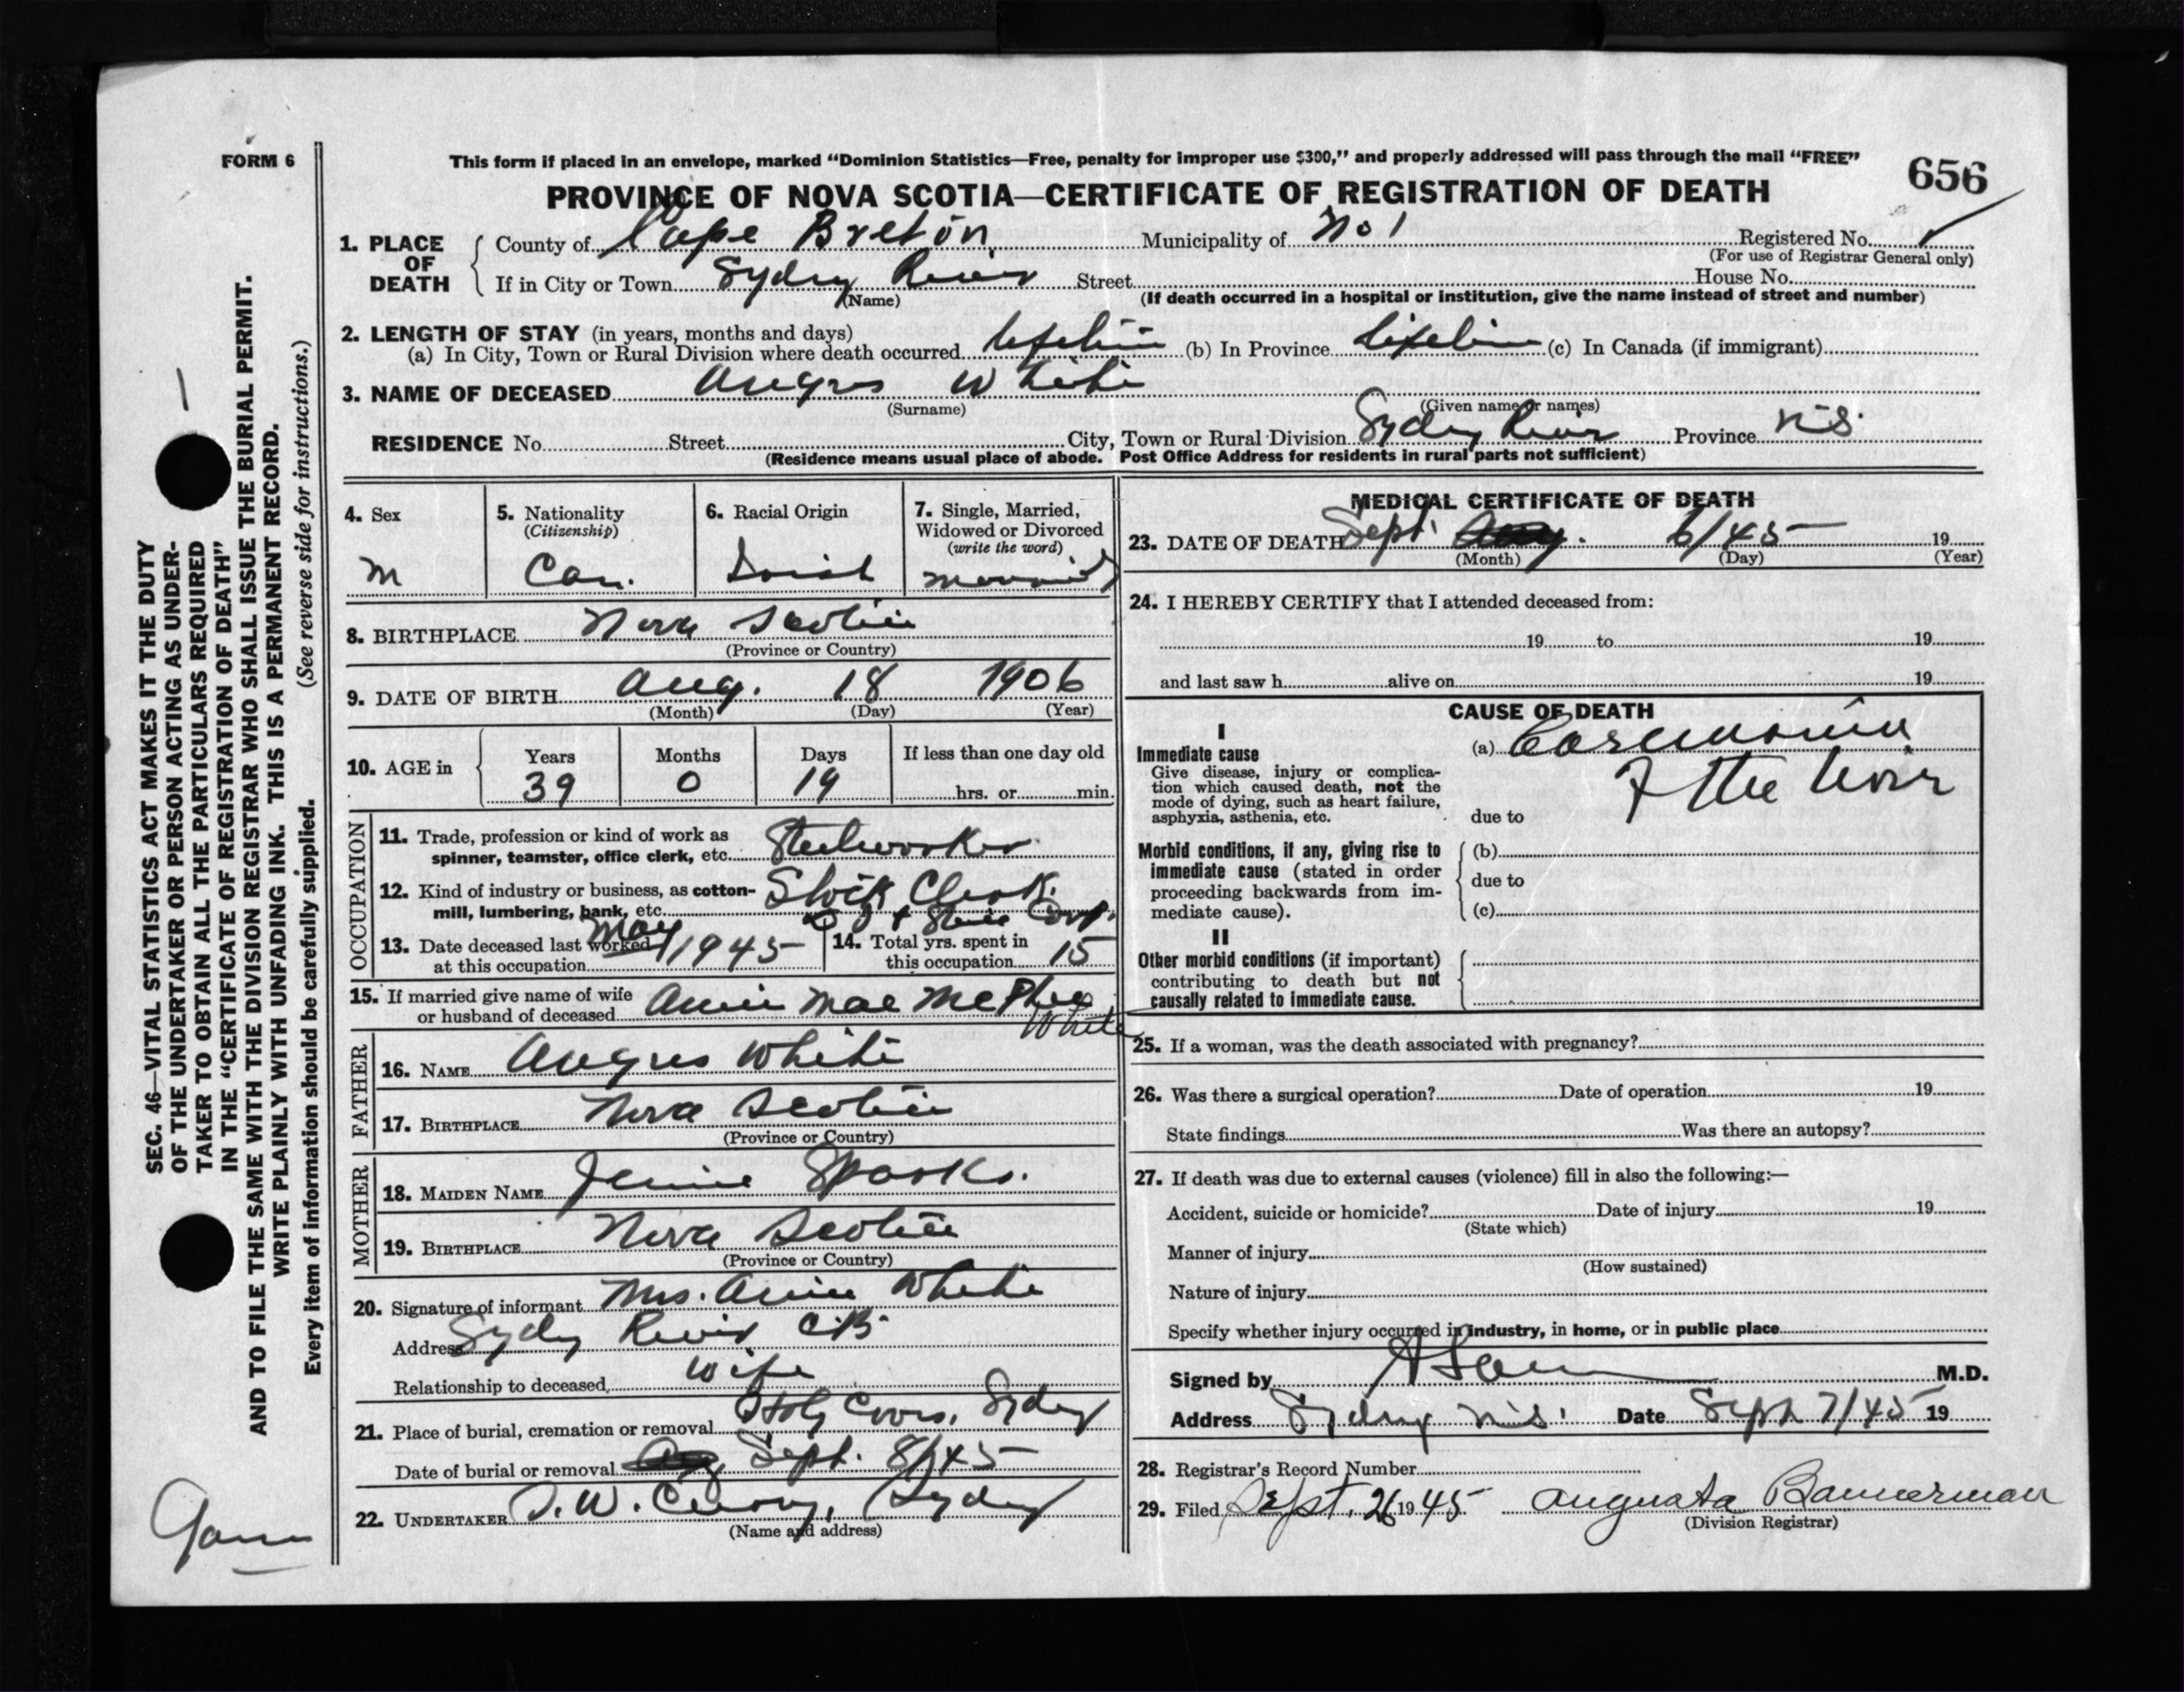 FORM 6
This form if placed in an envelope, marked “Dominion Statistics—Free, penalty for improper use $300,” and properly addressed will pass through the mail “FREE”
656
PROVINCE OF NOVA SCOTIA—CERTIFICATE OF REGISTRATION OF DEATH
1. PLACE OF DEATH
County of Cape Breton Municipality of No 1 Registered No.
(For use of Registrar General only)
If in City or Town Sydney River Street House No.
(Name) (If death occurred in a hospital or institution, give the name instead of street and number)
2. LENGTH OF STAY (in years, months and days)
(a) In City, Town or Rural Division where death occurred Lifetime (b) In Province Lifetime (c) In Canada (if immigrant)
3. NAME OF DECEASED Angus White
(Surname) (Given name or names)
RESIDENCE No. Street City, Town or Rural Division Sydney River Province N.S.
(Residence means usual place of abode. Post Office Address for residents in rural parts not sufficient)
4. Sex
M
5. Nationality
(Citizenship)
Can.
6. Racial Origin
7. Single, Married,
Widowed or Divorced
(write the word)
married
8. BIRTHPLACE Nova Scotia
(Province or Country)
9. DATE OF BIRTH Aug. 18 1906
(Month) (Day) (Year)
10. AGE in
Years Months Days If less than one day old
39 0 19 hrs. or min.
OCCUPATION
11. Trade, profession or kind of work as
spinner, teamster, office clerk, etc. Steelworker
12. Kind of industry or business, as cotton-
mill, lumbering, bank, etc. Stock Clerk.
+ Steel Corp.
13. Date deceased last worked
at this occupation May 1945
14. Total yrs. spent in
this occupation 15
15. If married give name of wife
or husband of deceased Annie Mae McPhee
White
FATHER
16. NAME Angus White
17. BIRTHPLACE Nova Scotia
(Province or Country)
MOTHER
18. MAIDEN NAME Jennie Sparks.
19. BIRTHPLACE Nova Scotia
(Province or Country)
20. Signature of informant Mrs. Annie White
Address Sydney River C.B.
Relationship to deceased wife
21. Place of burial, cremation or removal Holy Cross, Sydney
Date of burial or removal Sept. 8/45
22. UNDERTAKER T.W. Curry, Sydney
(Name and address)
MEDICAL CERTIFICATE OF DEATH
23. DATE OF DEATH Sept. 6/45 19
(Month) (Day) (Year)
24. I HEREBY CERTIFY that I attended deceased from:
19 to 19
and last saw h alive on 19
CAUSE OF DEATH
I
Immediate cause
Give disease, injury or complica-
tion which caused death, not the
mode of dying, such as heart failure,
asphyxia, asthenia, etc.
(a) Carcinoma
of the
due to
Morbid conditions, if any, giving rise to
immediate cause (stated in order
proceeding backwards from im-
mediate cause).
(b)
due to
(c)
II
Other morbid conditions (if important)
contributing to death but not
causally related to immediate cause.
25. If a woman, was the death associated with pregnancy?
26. Was there a surgical operation? Date of operation 19
State findings Was there an autopsy?
27. If death was due to external causes (violence) fill in also the following:—
Accident, suicide or homicide? Date of injury 19
(State which)
Manner of injury
(How sustained)
Nature of injury
Specify whether injury occurred in industry, in home, or in public place
Signed by M.D.
Address Sydney N.S. Date Sept 7/45 19
28. Registrar's Record Number
29. Filed Sept. 26 1945 Augusta Bannerman
(Division Registrar)
SEC. 46—VITAL STATISTICS ACT MAKES IT THE DUTY
OF THE UNDERTAKER OR PERSON ACTING AS UNDER-
TAKER TO OBTAIN ALL THE PARTICULARS REQUIRED
IN THE “CERTIFICATE OF REGISTRATION OF DEATH”
AND TO FILE THE SAME WITH THE DIVISION REGISTRAR WHO SHALL ISSUE THE BURIAL PERMIT.
WRITE PLAINLY WITH UNFADING INK. THIS IS A PERMANENT RECORD.
Every item of information should be carefully supplied. (See reverse side for instructions.)